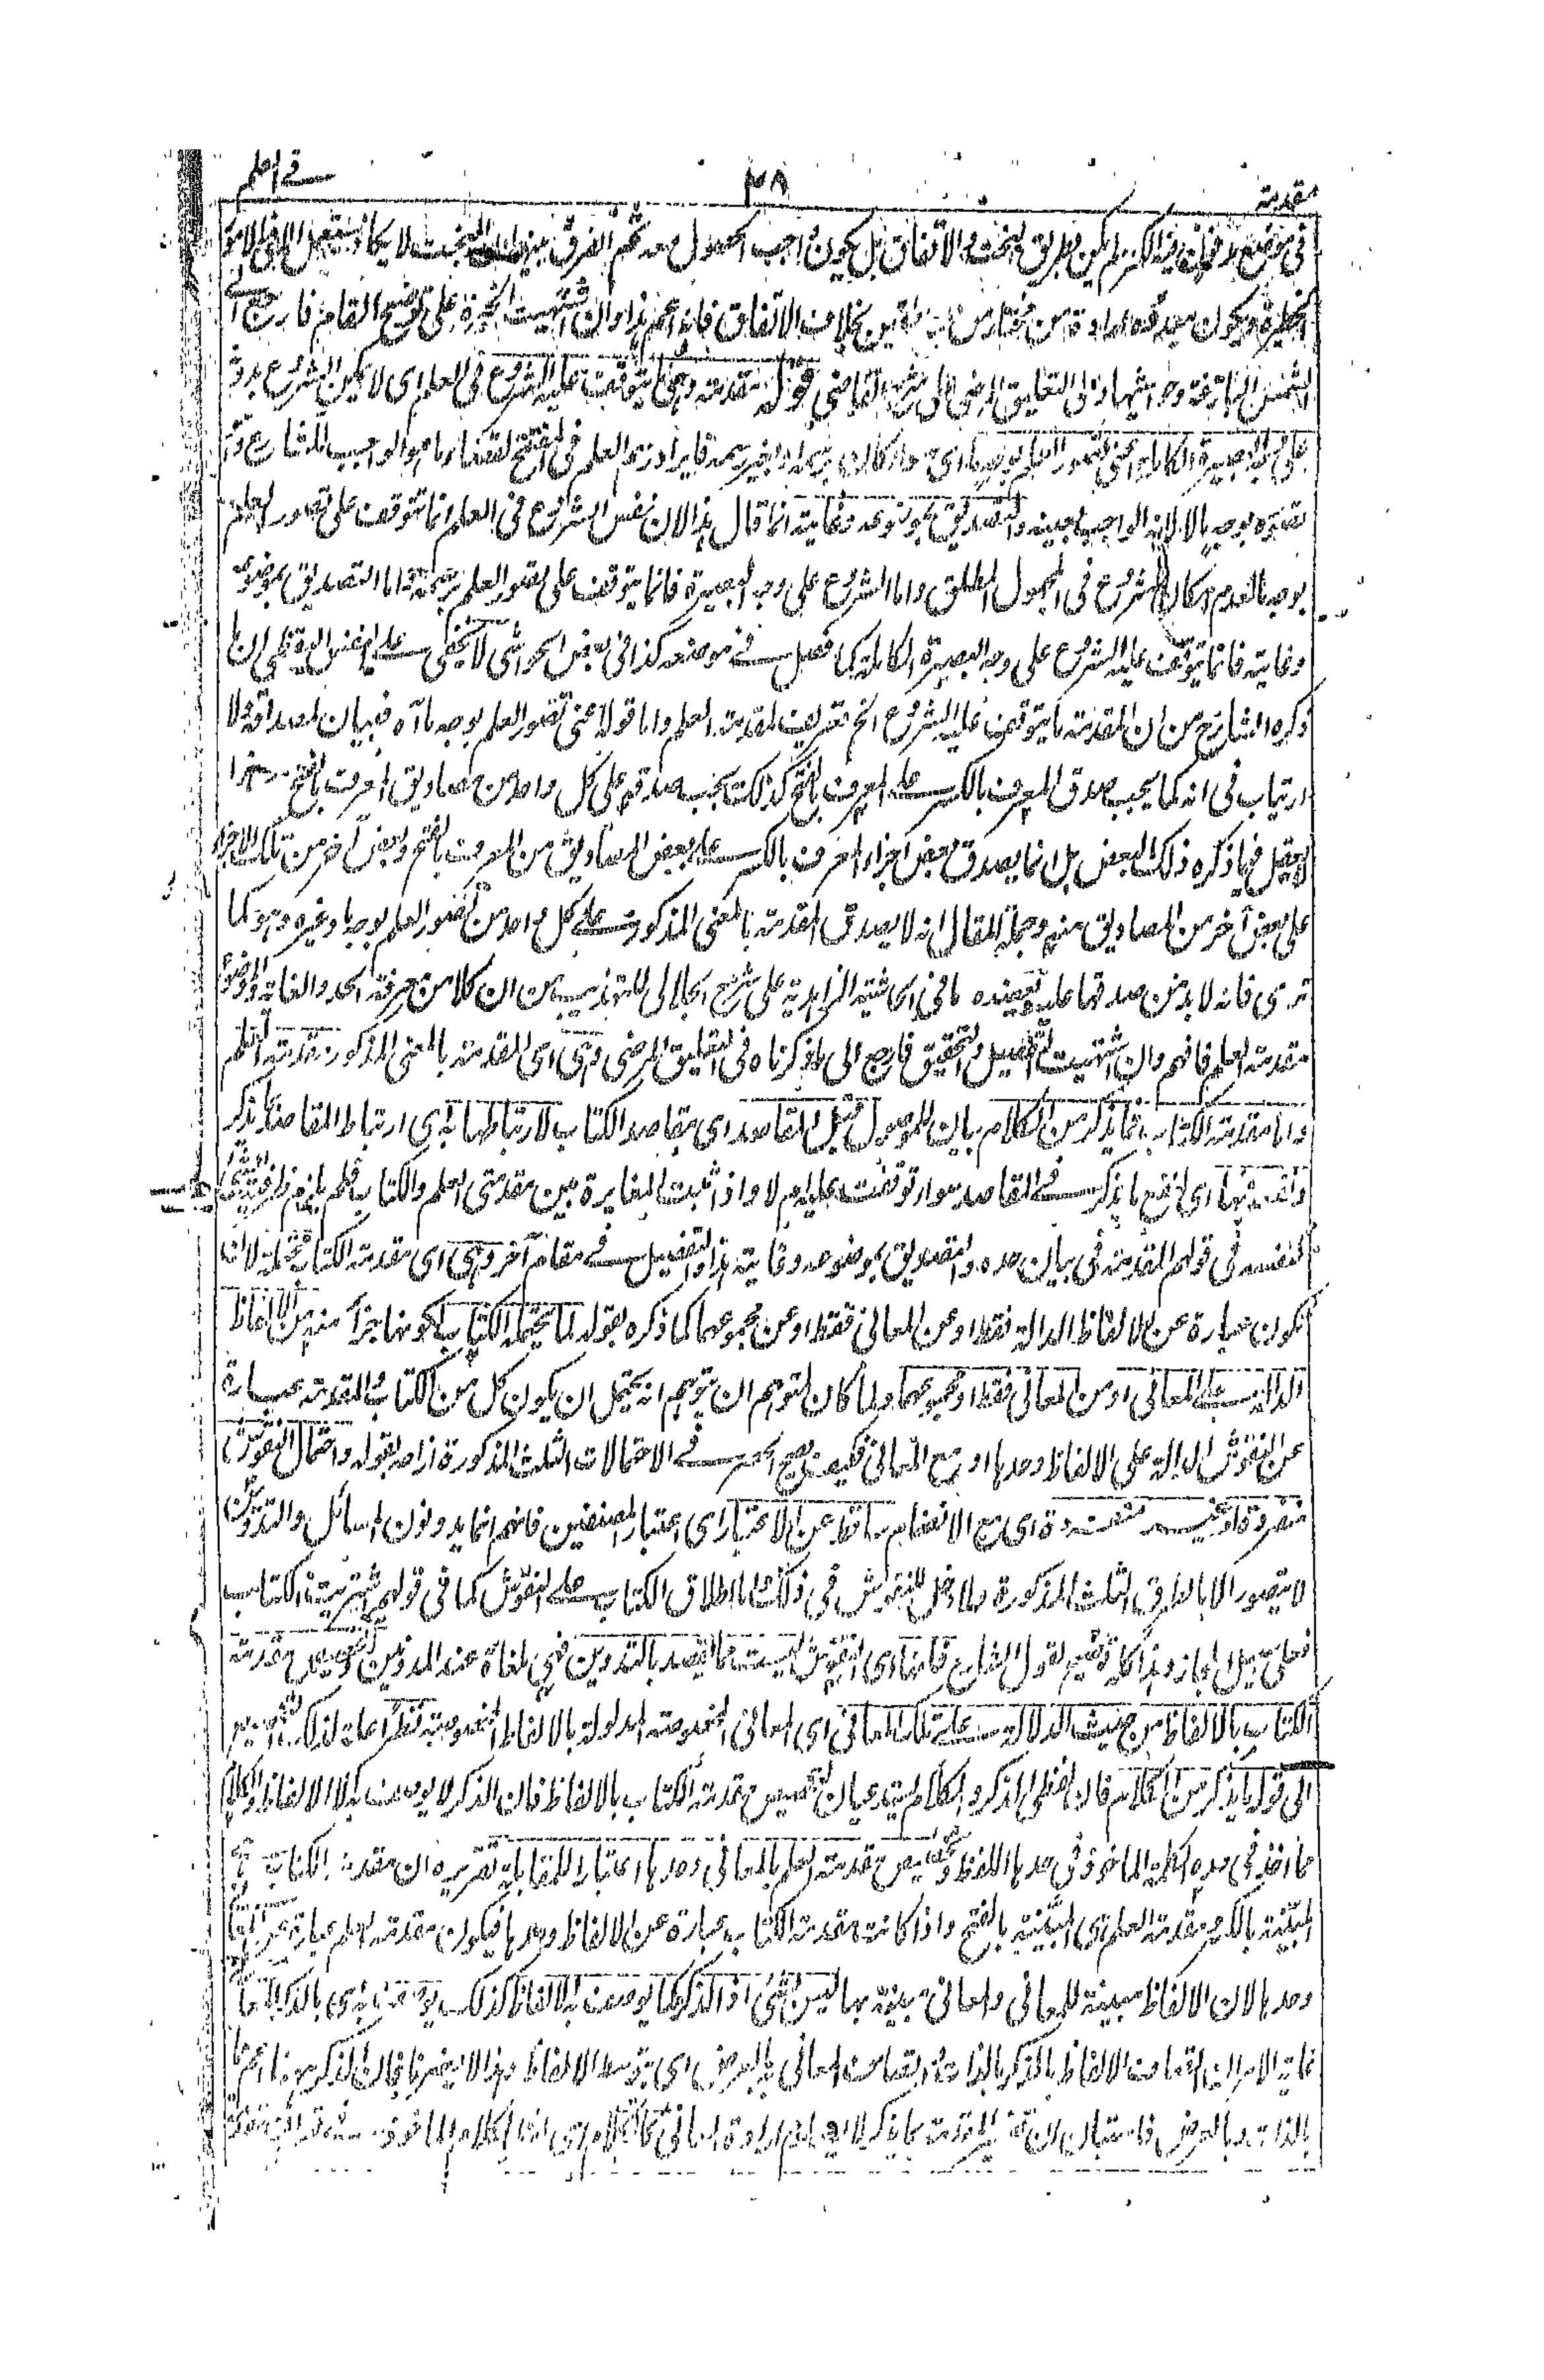 مقدمة
٣٨
في العلم
في موضع بذخوان فيه الكنز لم يكن بطريق البخت والاتفاق بل يكون واجب الحصول معه ثم الفرق بينهما ان البخت لا يكاد يستعمل الا في الامور
الخطيرة ويكون مبدؤه ارادة من مختار من بخلاف الاتفاق فانه اعم هذا وان اشتهيت الخبرة على توضيح المقام فارجع الى
الشمس البازغة وحواشيها والى التعليق المرضي على شرح القاضي قوله مقدمة وهي ما يتوقف عليه الشروع في العلم اى لا يمكن الشروع بدونه
على وجه البصيرة الكاملة اعني تصور العلم بوجه ما اى سواء كان برسمه او بغير رسمه فايراد رسم العلم في المفتتح ما هو الواجب للشارع وهو
تصوره بوجه ما لا لانه الواجب بعينه والتصديق بموضوعه وغايته انما قال هذا لان نفس الشروع في العلم انما تتوقف على تصور العلم
بوجه ما لعدم امكان الشروع في المجهول المطلق واما الشروع على وجه البصيرة فانما يتوقف على تصور العلم برسمه واما التصديق بموضوعه
وغايته فانما يتوقف عليه الشروع على وجه البصيرة الكاملة كما فصل في موضعه كذا في بعض الحواشي لا يخفى على الذهن اليقظي ان ما
ذكره الشارح من ان المقدمة ما يتوقف عليه الشروع الخ تعريف لمقدمة العلم واما قوله اعني تصور العلم بوجه ما اه فبيان لمصداقه ولا
ارتياب في انه كما يجب صدق المعرف بالكسر على المعرف بالفتح كذلك يجب صدقه على كل واحد من مصاديق المعرف بالفتح وهذا
لا يعقل فيما ذكره ذلك البعض بل انما يصدق بعض اجزاء المعرف بالكسر على بعض المصاديق من المعرف بالفتح وبعض آخر من تلك الاجزاء
على بعض آخر من المصاديق منه وجملة المقال انه لا يصدق المقدمة بالمعنى المذكور على كل واحد من تصور العلم بوجه ما وغيره وهو كما
ترى فانه لا بد من صدقها عليه ويعضده ما في الحاشية الزاهدية على شرح الجلالي للتهذيب من ان كلا من معرفة الحد والغاية والموضوع
مقدمة العلم فافهم وان اشتهيت التفصيل والتحقيق فارجع الى ما ذكرناه في التعليق المرضي وهي اى المقدمة بالمعنى المذكور مقدمة العلم
واما مقدمة الكتاب فما يذكر من الكلام بيان للموصول قبل المقاصد اى مقاصد الكتاب لارتباطها به اى ارتباط المقاصد بما يذكر
ونفعه فيها اى نفع ما يذكر في المقاصد سواء توقفت عليه ام لا واذا ثبت المغايرة بين مقدمتي العلم والكتاب فلم يلزم ظرفية الشئ
لنفسه في قولهم المقدمة في بيان حده والتصديق بموضوعه وغايته هذا والتفصيل في مقام آخر وهي اى مقدمة الكتاب محتملة لان
تكون عبارة عن الالفاظ الدالة فقط او عن المعاني فقط او عن مجموعهما كما ذكره بقوله لما يحتمله الكتاب لكونها جزأ منه من الالفاظ
الدالة على المعاني او من المعاني فقط او مجموعهما ولما كان لمتوهم ان يتوهم انه يحتمل ان يكون كل من الكتاب والمقدمة عبارة
عن النقوش الدالة على الالفاظ وحدها او مع المعاني فكيف يصح الحصر في الاحتمالات الثلث المذكورة ازاحه بقوله واحتمال النقوش
منفردة او غير منفردة اى مع الانضمام ساقط عن الاعتبار اى اعتبار المصنفين فانهم انما يدونون المسائل والتدوين
لا يتصور الا بالطرق الثلث المذكورة ولا دخل للنقوش في ذلك واما اطلاق الكتاب على النقوش كما في قولهم اشتريت الكتاب
فعلى سبيل المجاز وهذا كله توضيح لقول الشارح فانها اى النقوش ليست مما يقصد بالتدوين فهي ملغاة عند المدونين وتخصيص مقدمة
الكتاب بالالفاظ من حيث الدلالة على تلك المعاني اى المعاني المخصوصة المدلولة بالالفاظ المخصوصة نظرا علة لذلك التخصيص
الى قوله ما يذكر من الكلام فان لفظي الذكر والكلام يستدعيان تخصيص مقدمة الكتاب بالالفاظ فان الذكر لا يوصف به الا الالفاظ والكلام
مما اخذ في حده الكلمة الماخوذة في حدها اللفظ وتخصيص مقدمة العلم بالمعاني وحدها اعتبارا للمقابلة تقريره ان مقدمة الكتاب هي
المبينة بالكسر ومقدمة العلم هي المبينة بالفتح واذا كانت مقدمة الكتاب عبارة عن الالفاظ وحدها فيكون مقدمة العلم عبارة عن المعاني
وحدها لان الالفاظ مبينة للمعاني والمعاني مبينة بها ليس بشئ اذ الذكر كما يوصف به الالفاظ كذلك يوصف به اى بالذكر المعاني
غاية الامر ان اتصاف الالفاظ بالذكر بالذات واتصاف المعاني به بالعرض اى بتوسط الالفاظ وهذا لا يضرنا فان الذكر هو هنا اعم مما
بالذات وبالعرض فاستبان ان تفسير المقدمة بما يذكر لا يصادم ارادة المعاني كالكلام اى لفظ الكلام الماخوذ